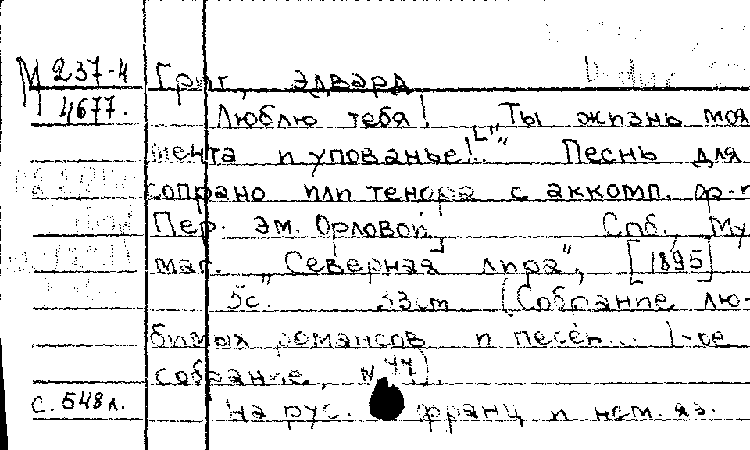 М 237-4 Григ, Эдвард
4677. Люблю тебя! „Ты жизнь моя
мечта и упованье!.." Песнь для
сопрано или тенора с аккомп. ф-п
Пер. Эм. Орловой Спб., Му
маг. „Северная лира", [1895]
5с. 33см (Собрание лю-
бимых романсов и песен... 1-ое
собрание, №44).
с. 548л. На рус. франц и нем. яз.